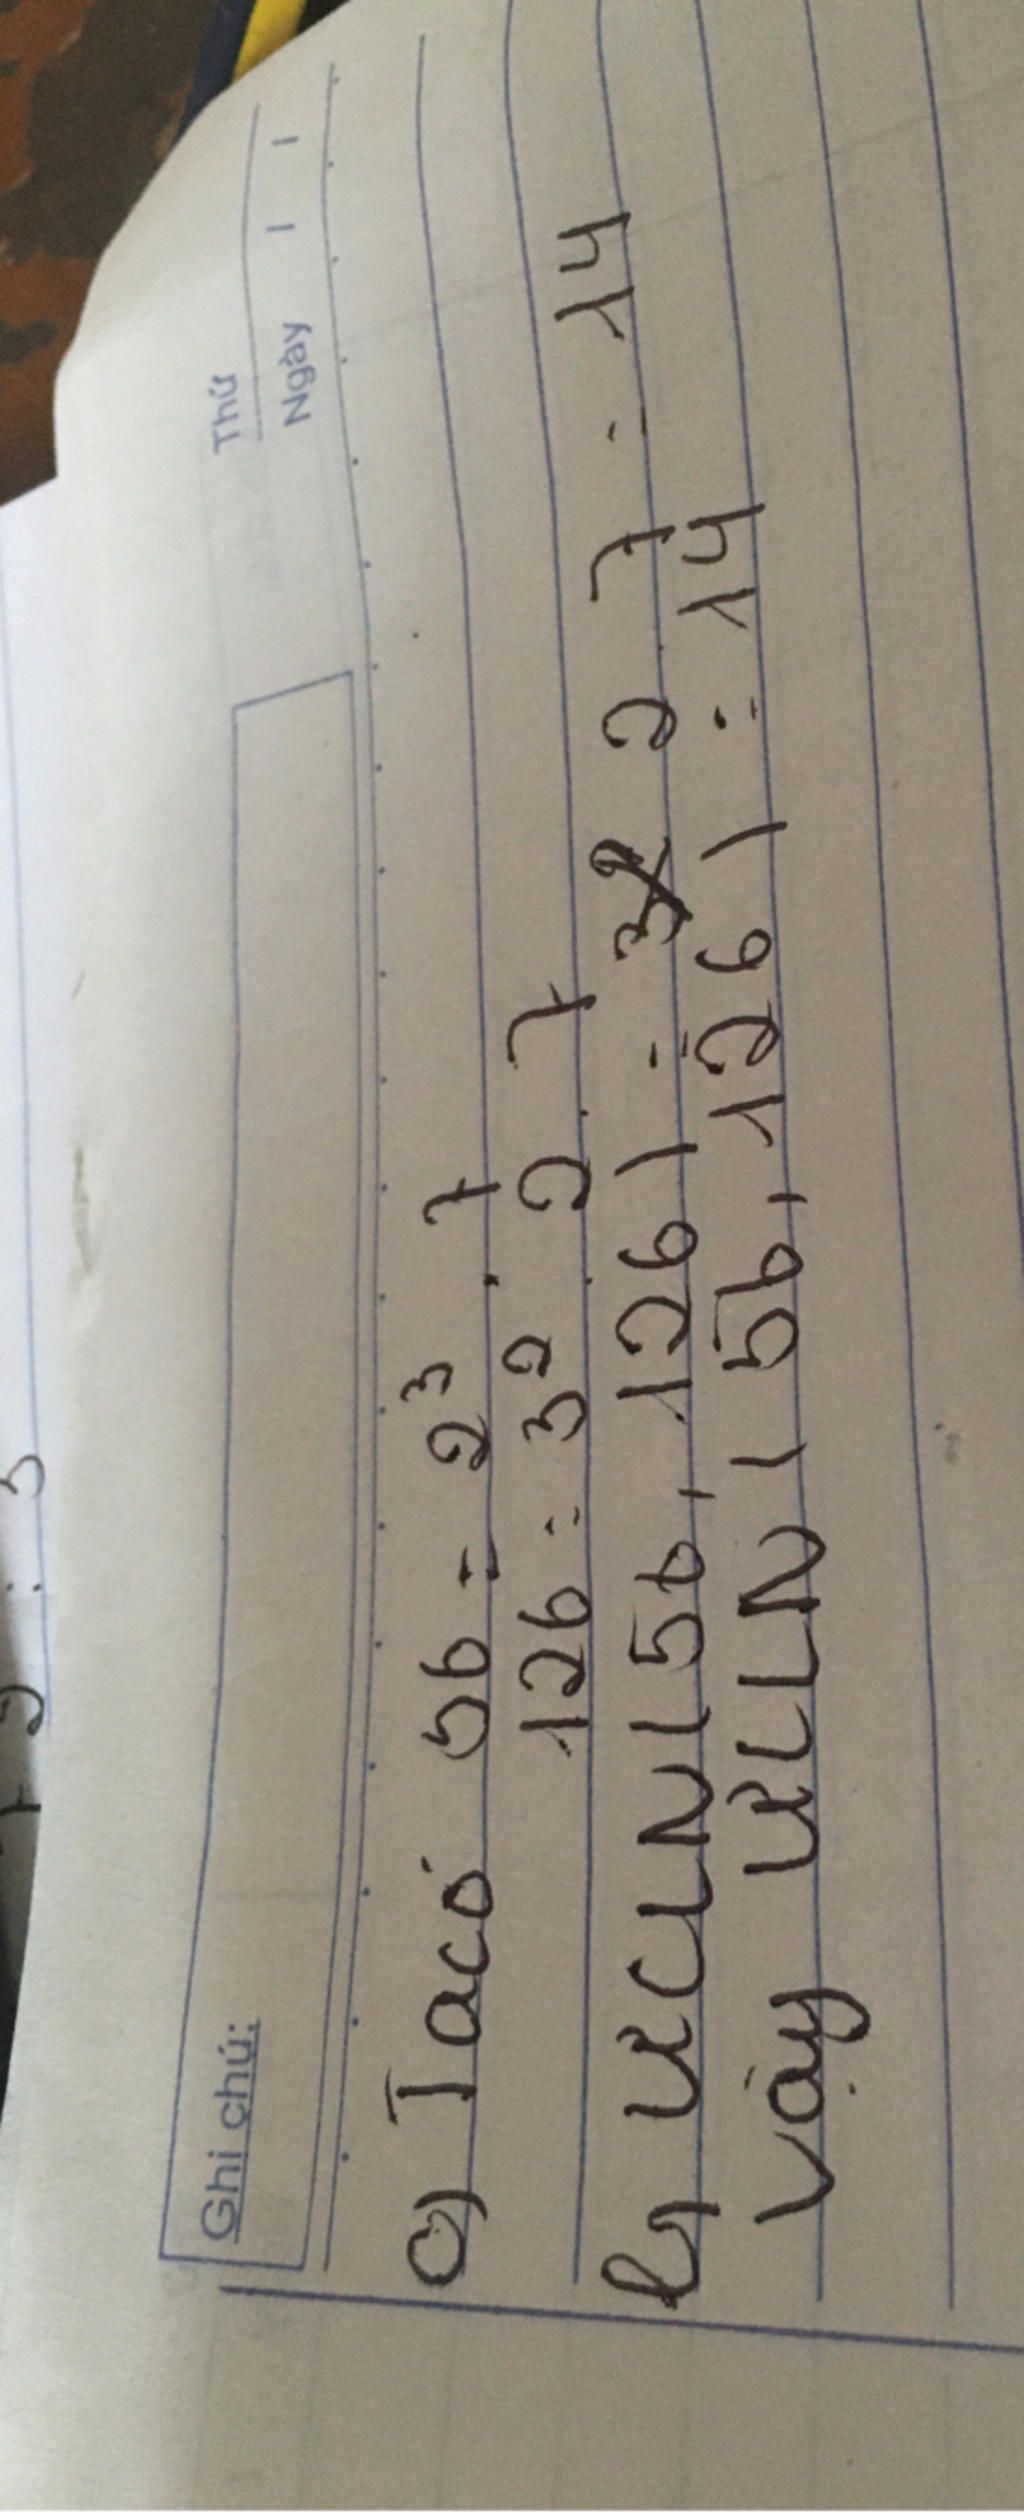 Thứ
Ngày / /
Ghi chú:
a) Ta có 56 = 2³ . 7
126 = 3² . 2 . 7
b, ƯCLN (56, 126) = 2 . 7 = 14
Vậy ƯCLN (56, 126) = 14